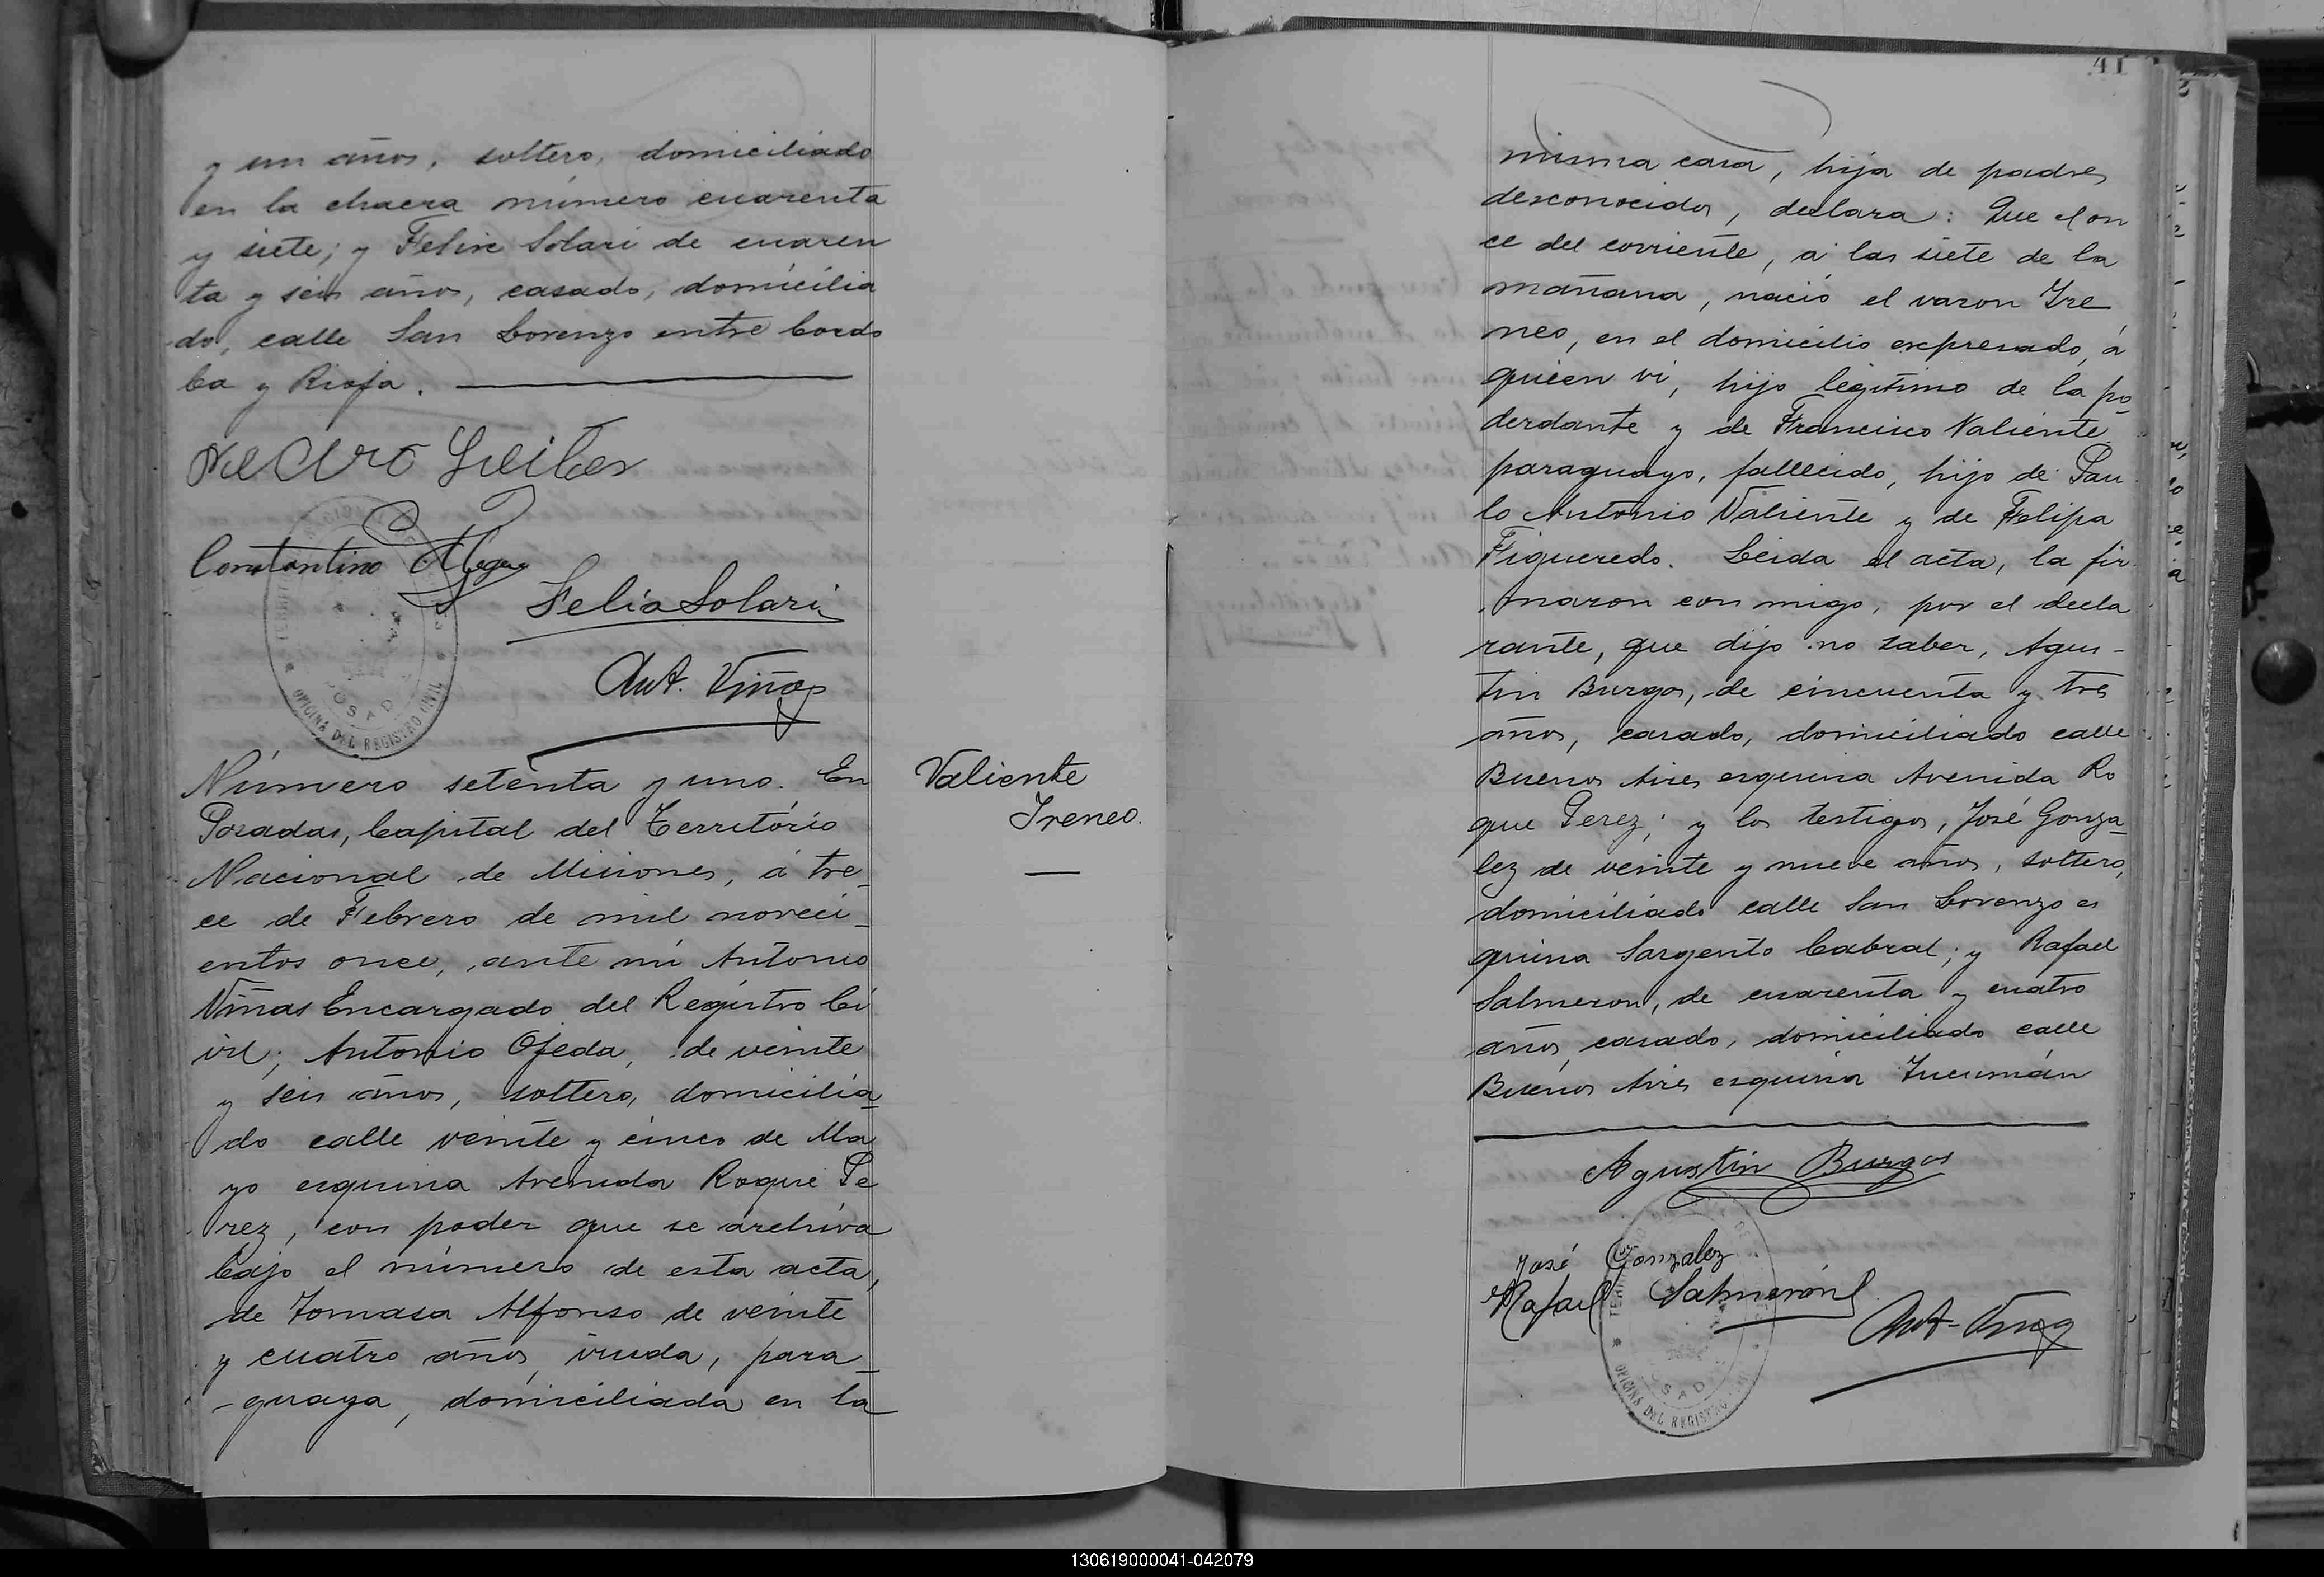 y un años, soltero, domiciliado
en la chacra número cuarenta
y siete; y Felix Solari de cuaren
ta y seis años, casado, domicilia
do, calle San Lorenzo entre Cordo
ba y Rioja.
Constantino Alegre
Felix Solari
Ant. Viñas
OFICINA DEL REGISTRO CIVIL
POSADAS
Número setenta y uno. En
Posadas, Capital del Território
Nacional de Misiones, á tre_
ce de Febrero de mil noveci_
entos once, ante mi Antonio
Viñas Encargado del Registro Ci
vil; Antonio Ojeda, de veinte
y seis años, soltero, domicilia_
do calle veinte y cinco de Ma
yo esquina Avenida Roque Pe
rez, con poder que se archiva
bajo el número de esta acta,
de Tomasa Alfonso de veinte
y cuatro años, viuda, para_
-guaya, domiciliada en la
Valiente
Ireneo.
41
misma casa, hija de padres
desconocidos, declara: Que el on
ce del corriente, á las siete de la
mañana, nació el varon Ire
neo, en el domicilio expresado, á
quien vi, hijo legítimo de la po_
derdante y de Francisco Valiente,
paraguayo, fallecido, hijo de Pau
lo Antonio Valiente y de Felipa
Figueredo. Leida el acta, la fir
maron con migo, por el decla
rante, que dijo no saber, Agus-
tin Burgos, de cincuenta y tres
años, casado, domiciliado calle
Buenos Aires esquina Avenida Ro
que Perez; y los testigos, José Gonza_
lez de veinte y nueve años, soltero,
domiciliado calle San Lorenzo es
quina Sargento Cabral; y Rafael
Salmeron, de cuarenta y cuatro
años, casado, domiciliado calle
Buenos Aires esquina Tucumán
Agustin Burgos
José Gonzalez
Rafael Salmerón
Ant. Viñas
OFICINA DEL REGISTRO CIVIL
130619000041-042079